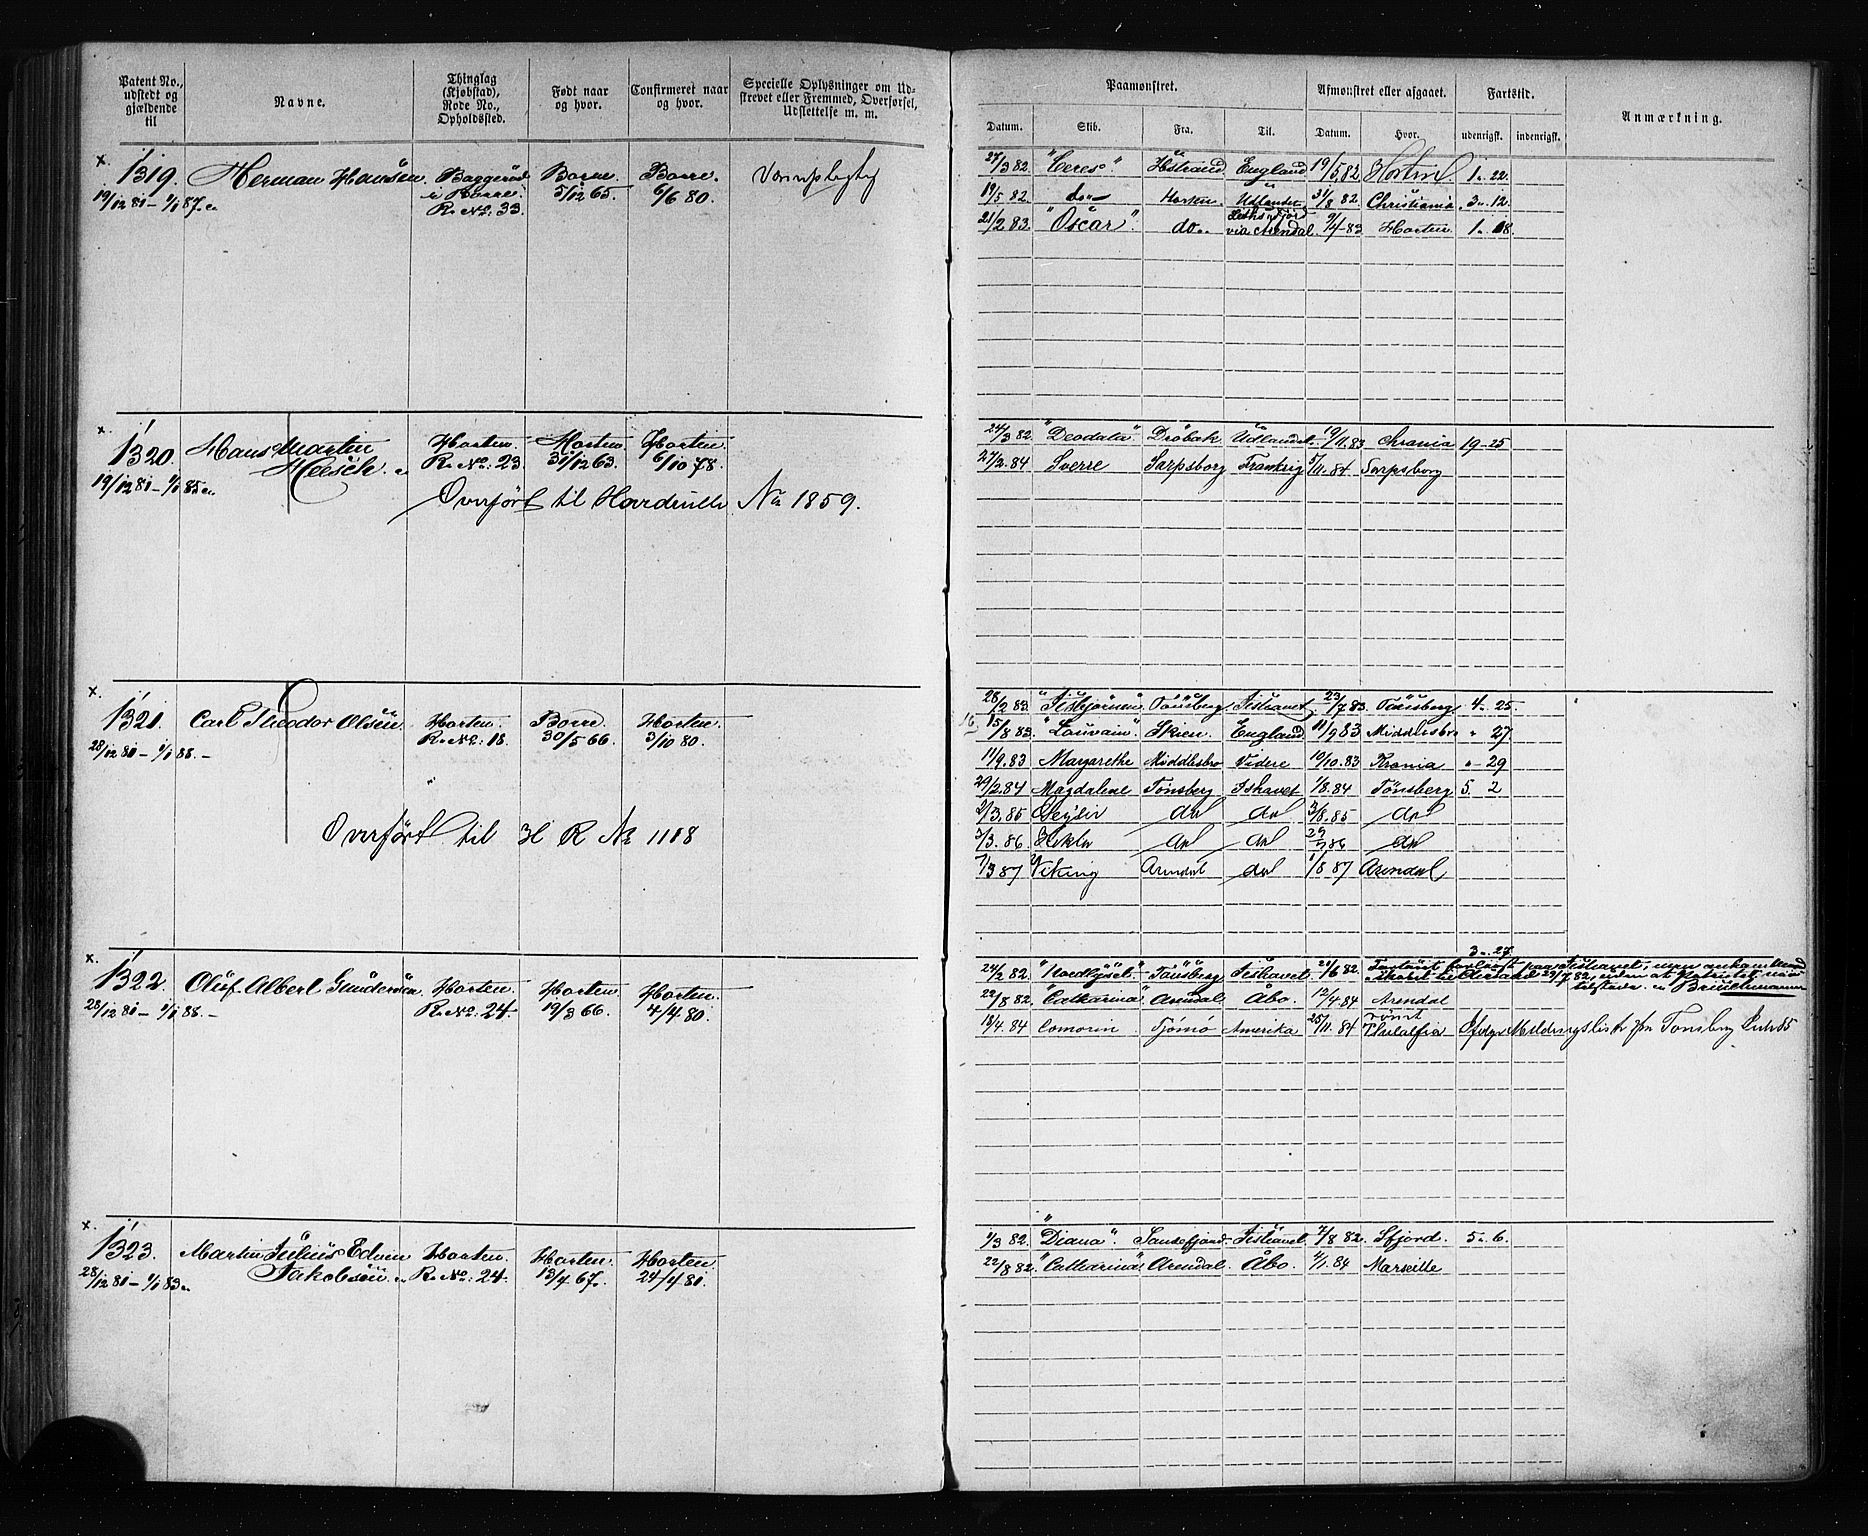 Patent No., udstedt og gjældende til
Navne.
Thinglag (Kjøbstad), Rode No., Opholdssted.
Født naar og hvor.
Confirmeret naar og hvor.
Specielle Oplysninger om Udskrevet eller Fremmed, Overførsel, Udslettelse m. m.
Paamønstret.
Afmønstret eller afgaaet.
Fartstid.
Anmærkning.
Datum. Skib. Fra. Til. Datum. Hvor. udenrigsk. indenrigsk.
x. 1319. Herman Hansen. Baggerød Borre. Borre. Værnepligtig
19/12 81 – 1/1 87. i Borre. 5/12 65. 6/6 80.
R. No. 33.
27/3 82. "Ceres" Hstrand England 19/5 82 Horten 1 " 22.
19/5 82 do Horten Udlandet 31/8 82. Christiania 3 " 12.
21/2 83. "Oscar". do via Arendal 9/4 83 Horten 1 " 18.
x. 1320. Hans Martin Horten. Horten. Horten.
Heesch. R. No. 23. 31/12 63. 6/10 78.
19/12 81 – 1/1 85
Overført til Hovedrulle No 1859.
24/3 82. "Deodata" Drøbak Udlandet 19/11 83 Chrania 19 – 25
27/2 84 Sverre Sarpsborg Frankrig 5/11 84 Sarpsborg
x. 1321. Carl Theodor Olsen Horten. Borre. Horten.
28/12 81 – 1/1 88. – R. No. 18. 30/5 66. 3/10 80.
Overført til H R No 1118
28/2 83. "Isbjørnen" Tønsberg Ishavet 23/7 83. Tønsberg 4 " 25.
16 15/8 83 "Louvain" Skien. England 11/9 83 Middlesbro " 27
11/9 83 Margarethe Middlesbro Videre 19/10 83 Krania " – 29
29/2 84 Magdalene Tønsberg Ishavet 1/8 84 Tønsberg 5. 2
2/3. 85 Geysir do do 3/8. 85 do
3/3. 86 Hekla do do 29/7 86 do
7/3 87 Viking Arendal do 1/8 87 Arendal
x. 1322. Oluf Albert Gundersen Horten. Horten. Horten.
28/12 81 – 1/1 88. – R. No. 24. 19/3 66. 4/4 80.
3 " 27.
24/2 82. "Nordlyset" Tønsberg Ishavet 21/6 82.
22/8 82. "Catharina" Arendal Åbo. 12/4 84 Arendal
18/4. 84 Comorin Tjømø Amerika 25/11. 84 rømt
Tønsberg
x. 1323. Martin Julius Edvin Horten. Horten. Horten.
Jakobsen. R. No. 24. 13/4 67. 24/4 81.
28/12 81 – 1/1 83
1/3 82. "Diana". Sandefjord Ishavet 7/8 82. Sfjord. 5 " 6.
22/8 82. "Catharina" Arendal. Åbo. 4/1. 84 Marseille